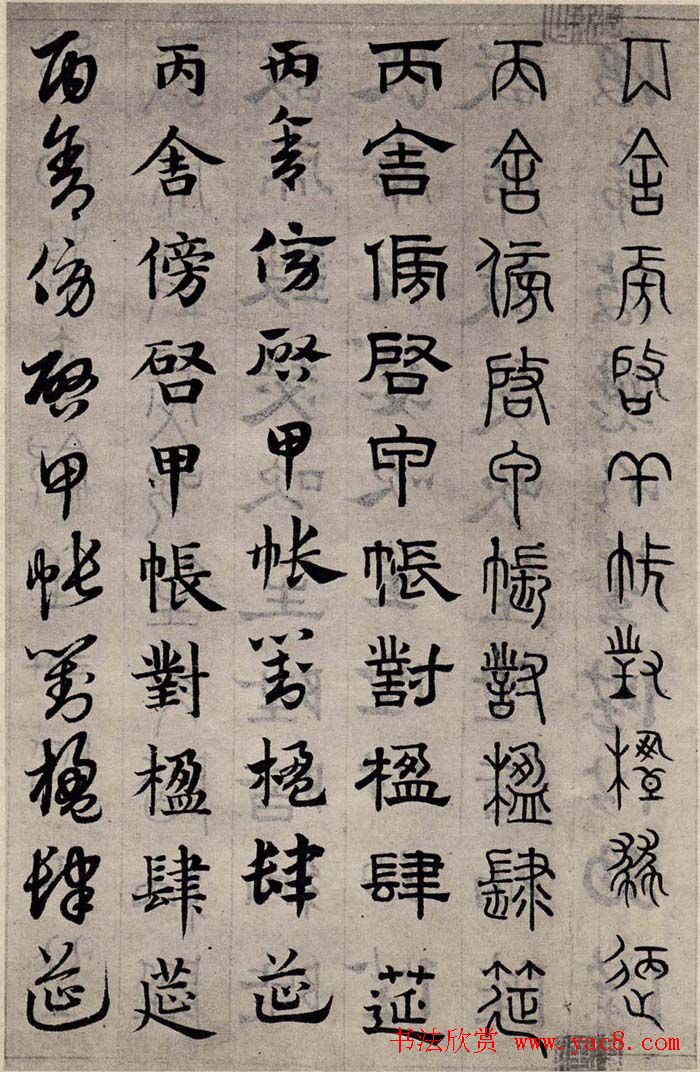 丙舍傍啓甲帳對楹肆筵
丙舍傍啓甲帳對楹肆筵
丙舍傍啓甲帳對楹肆筵
丙舍傍啓甲帳對楹肆筵
丙舍傍啓甲帳對楹肆筵
丙舍傍啓甲帳對楹肆筵
书法欣赏 www.yac8.com